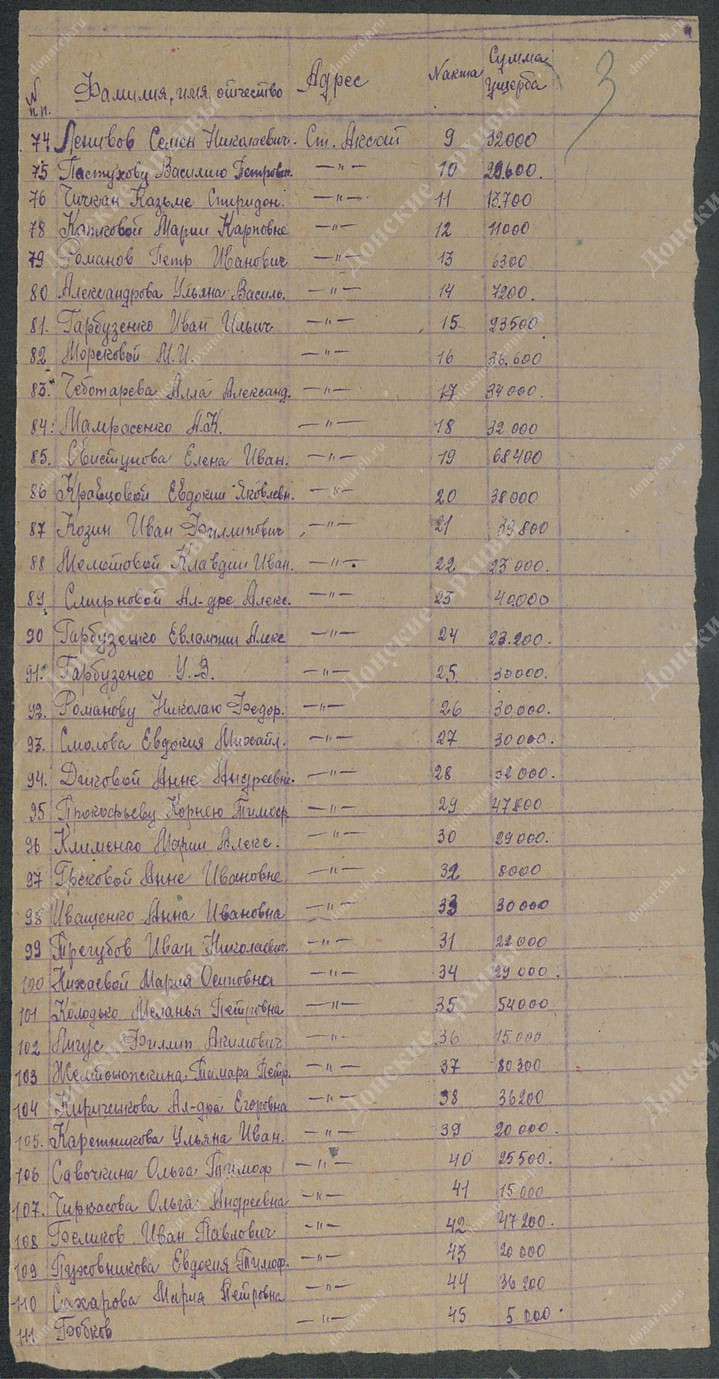 3
N п.п. Фамилия, имя, отчество Адрес N акта Сумма ущерба
74 Семен Николаевич. Ст. Аксай 9 32000
75 Пастухову Василию Петрович. —"— 10 600.
76 Чичкан Казьме Спиридон. —"— 11 700
78 Катковой Марии Карповне —"— 12 11000
79 Романов Петр Иванович —"— 13 6300
80 Александрова Ульяна Василь. —"— 14 7200.
81. Гарбузенко Иван Ильич —"— 15 23500
82 Морсковой М.И. —"— 16 36.600
83. Чеботарева Алла Александ. —"— 17 34000.
84. Мамрасенко А.К. —"— 18 32000
85. Свистунова Елена Иван. —"— 19 68400
86 Кравцовой Евдокии Яковлевн. —"— 20 38000
87 Козин Иван Филлипович —"— 21 39800
88 Молотовой Клавдии Иван. —"— 22 23000.
89 Смирновой Ал-дре Алекс. —"— 23 40000
90 Гарбузенко Евлампии Алекс —"— 24 23.200.
91. Гарбузенко У.В. —"— 25 30000.
92. Романову Николаю Федор. —"— 26 30000.
93. Смолова Евдокия Михайл. —"— 27 30000.
94. Анне Андреевне. —"— 28 32000.
95 Прокофьеву Корнею Тимоф —"— 29 47800
96 Клименко Марии Алекс. —"— 30 29000.
97 Грековой Анне Ивановне —"— 32 8000
98 Иващенко Анна Ивановна —"— 33 30000
99 Трегубов Иван Николаевич. —"— 31 22000
100 Мария Осиповна —"— 34 29000.
101 Колодько Меланья Петровна —"— 35 54000
102 Филлип Акимович —"— 36 15000
103 Желтоножкина Тамара Петр. —"— 37 80300
104 Кириченкова Ал-дра Егоровна —"— 38 36200
105. Каретникова Ульяна Иван. —"— 39 20000.
106 Савочкина Ольга Тимоф —"— 40 25500.
107. Чиркасова Ольга Андреевна —"— 41 15000
108 Иван Павлович —"— 42 47200.
109 Пуховникова Евдокия Тимоф. —"— 43 20000
110 Сахарова Мария Петровна —"— 44 36200
111 —"— 45 5000.
Донские архивы
donarch.ru